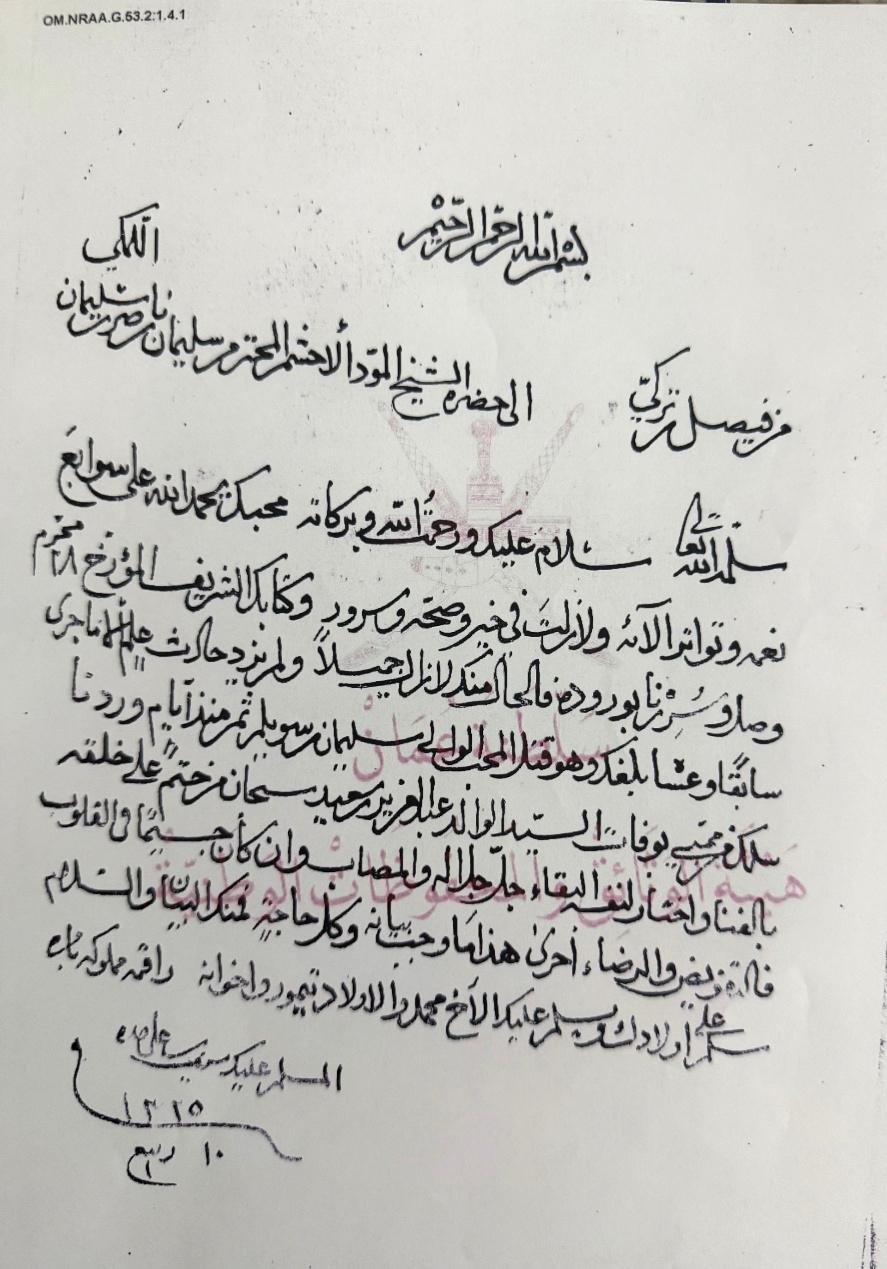 OM.NRAA.G.53.2:1.4.1
بسم الله الرحمن الرحيم
من فيصل بن تركي الى حضرة الشيخ المود الأحشم المحترم سليمان بن ناصر بن سليمان اللمكي
سلمه الله تعالى سلام عليك ورحمت الله وبركاته محبك بحمد الله على سوابغ
نعمه وتواتر الآئه ولازلت في خير وصحة وسرور وكتابك الشريف المؤرخ ٢٨ محرم
وصل وسرنا بوروده فالحال منك لازال جميلاً ولم يزيد حادث علم الا ما جرى
سابقاً وعشا بلغك وهو قتل المحب الوالي سليمان بن سويلم ثم منذ أيام وردنا
سلك من ممبي بوفات السيد الوالد عبدالعزيز بن سعيد سبحان من ختم على خلقه
بالفنا واختار لنفسه البقاء جل جلاله والمصاب وان كان جسيماً في القلوب
فالتفويض والرضاء أحرى هذا ما وجب بيانه وكل حاجة لك منك البيان والسلام
سلم على أولادك ويسلم عليك الأخ محمد والاولاد تيمور واخوانه راقمه مملوكه بامره
المسلم عليك
١٣٢٥
١٠ ربيع ١
هيئة الوثائق والمحفوظات الوطنية
سلطنة عمان